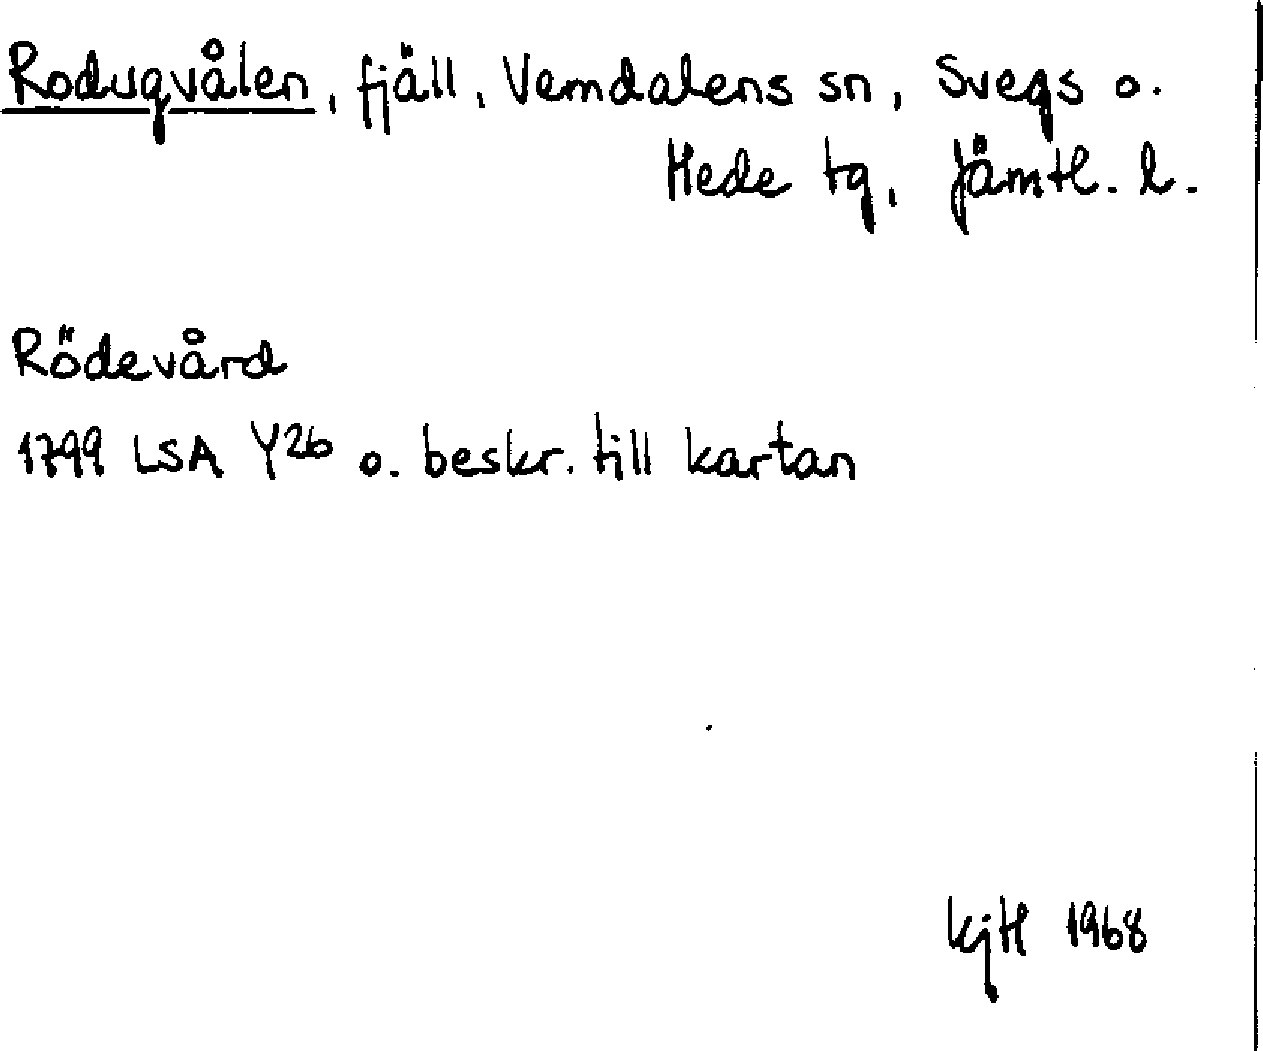 Rodugvålen, fjäll, Vemdalens sn, Svegs o.
Hede tg, Jämtl. l.
Rödevård
1799 LSA Y26 o. beskr. till kartan
KjH 1968